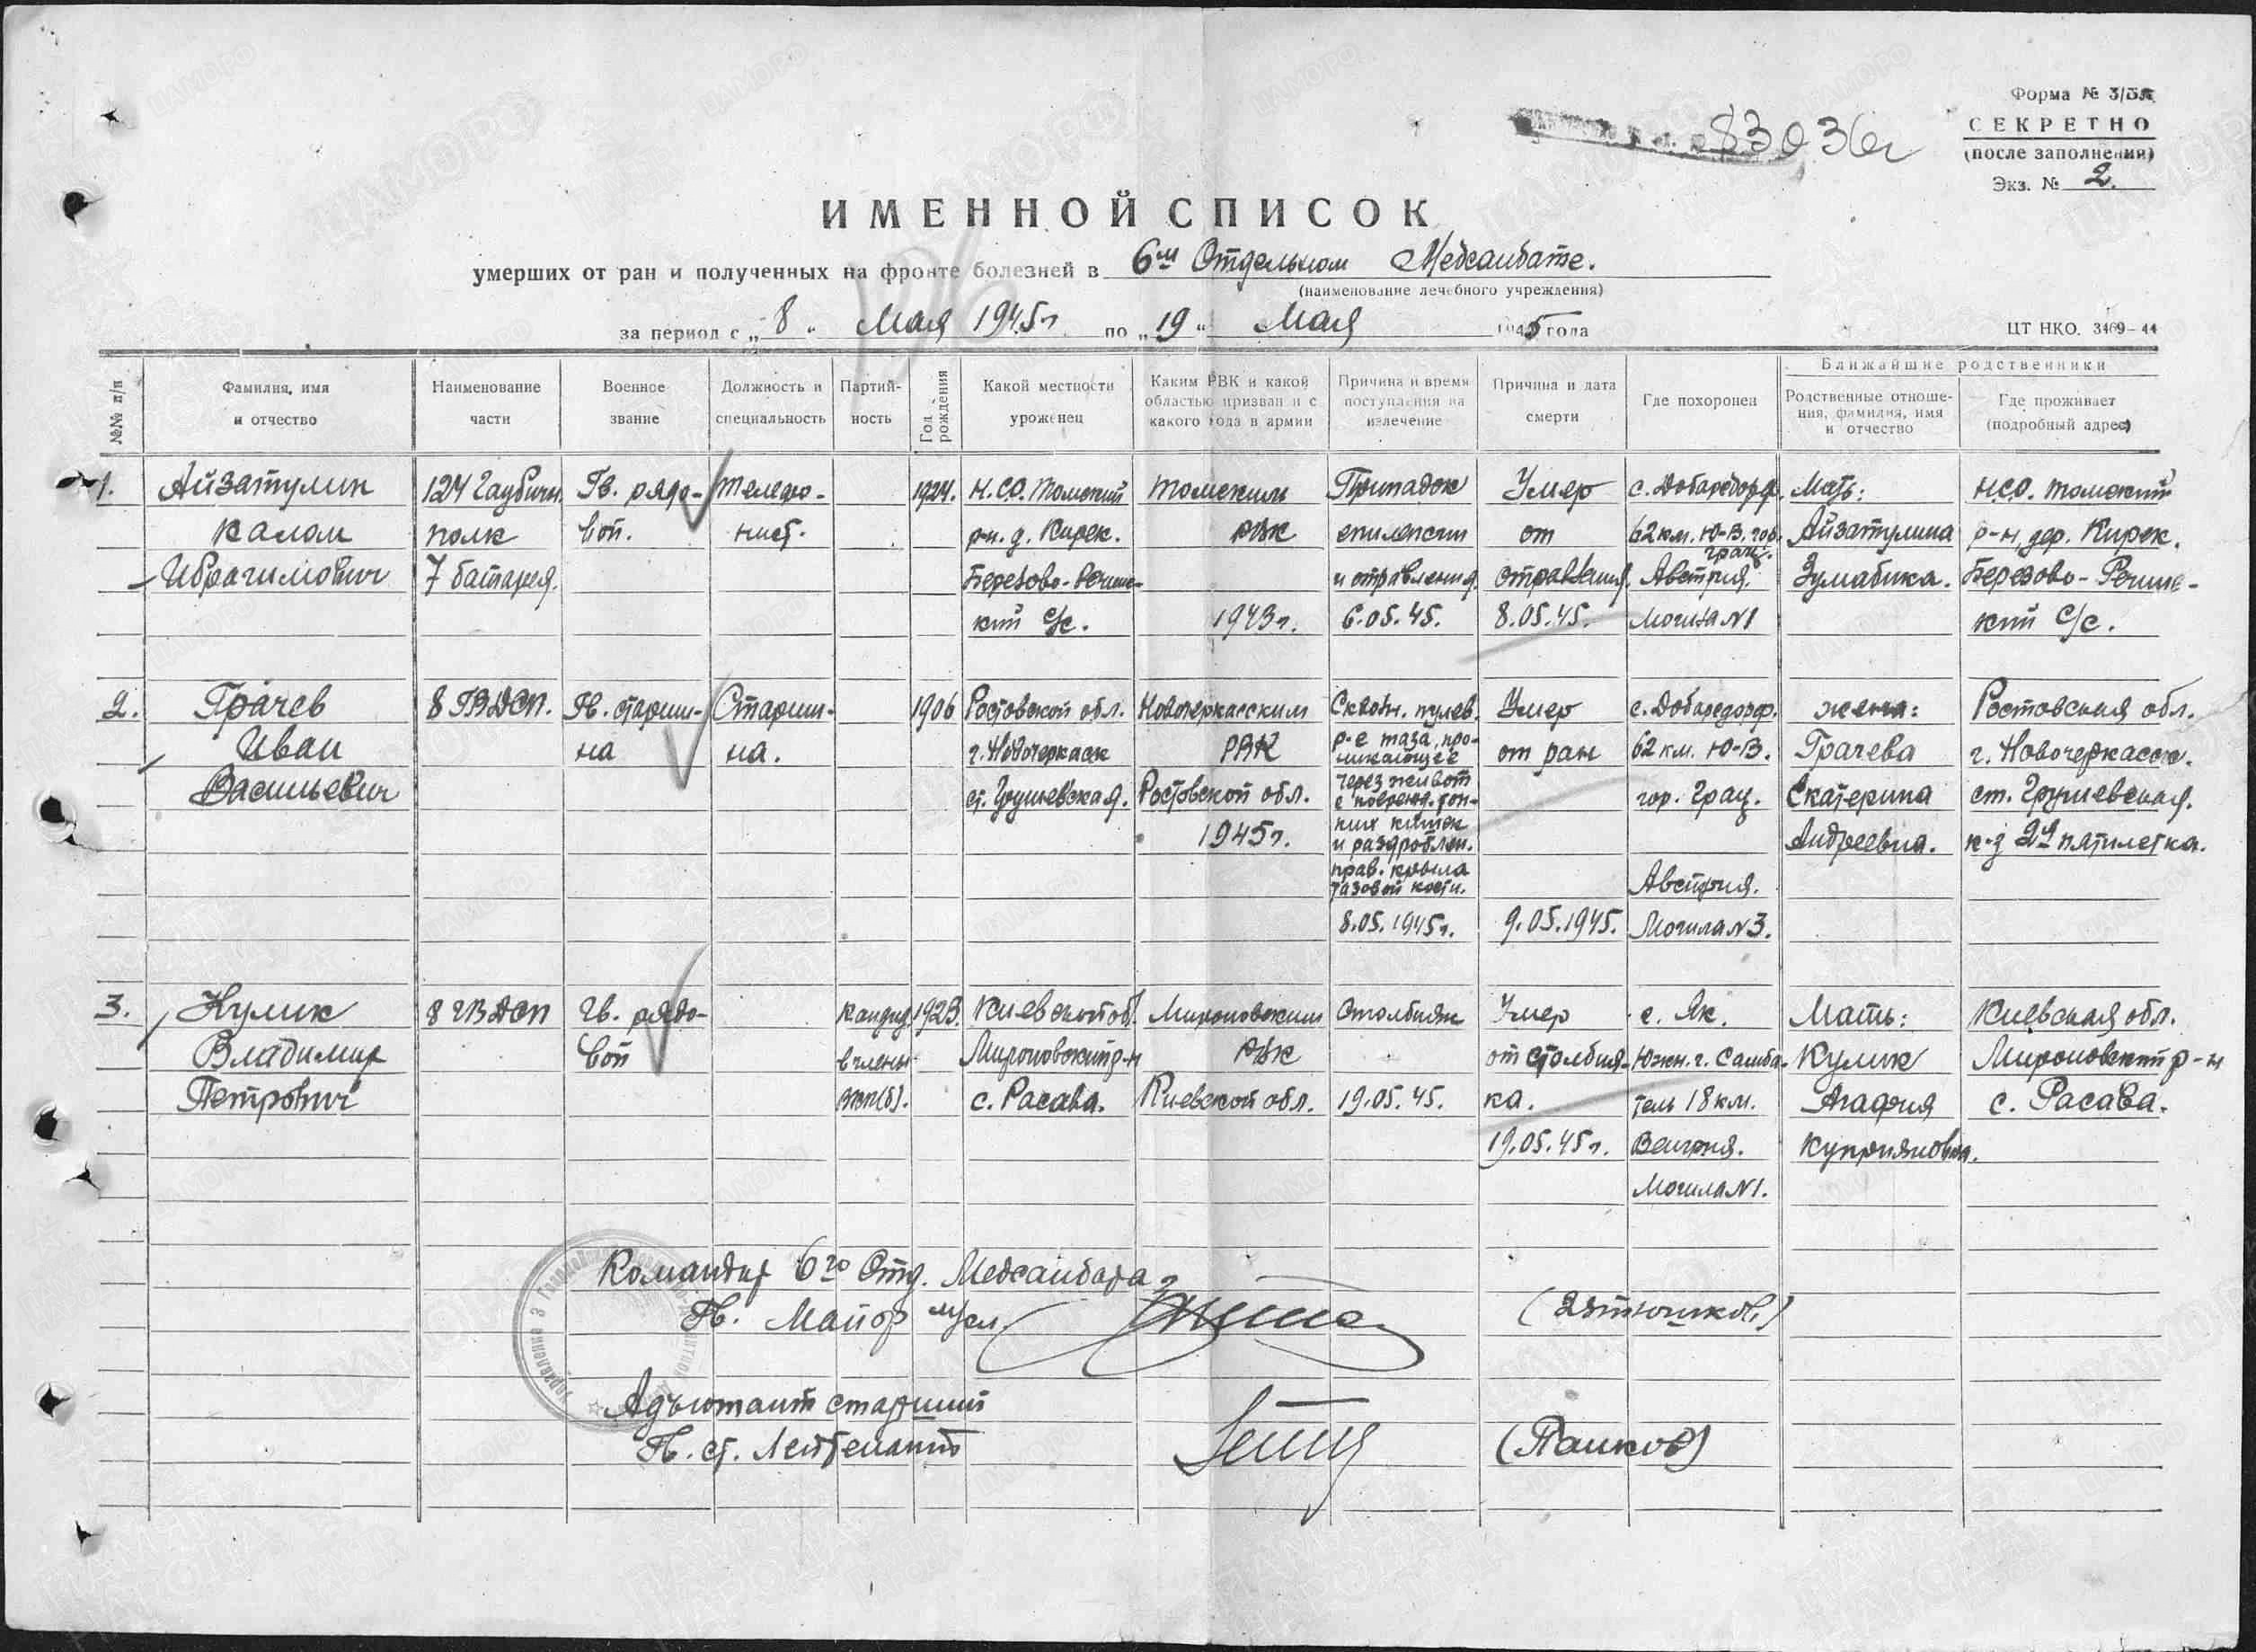 Форма № 3/ЗА
СЕКРЕТНО
(после заполнения)
Экз. № 2.
83036с
ИМЕННОЙ СПИСОК
умерших от ран и полученных на фронте болезней в 6м Отдельном Медсанбате.
(наименование лечебного учреждения)
за период с „8" Мая 1945г по „19" Мая 1945 года
ЦТ НКО. 3469-44
№№ п/п
Фамилия, имя
и отчество
Наименование
части
Военное
звание
Должность и
специальность
Партий-
ность
Год
рождения
Какой местности
уроженец
Каким РВК и какой
областью призван и с
какого года в армии
Причина и время
поступления на
излечение
Причина и дата
смерти
Где похоронен
Ближайшие родственники
Родственные отноше-
ния, фамилия, имя
и отчество
Где проживает
(подробный адрес)
1.
Айзатулин
Калом
Ибрагимович
124 Гаубичн.
полк
7 батарея.
Гв. рядо-
вой.
телефо-
нист.
1924.
Н.С.О. Томский
р-н. д. Кирек.
Березово-Речинс-
кий с/с.
Томским
РВК
1943г.
Припадок
епилепсии
и отравления.
6.05.45.
Умер
от
отравления.
8.05.45.
с. Добаредорф.
62 км. Ю-В. гор.
Грац.
Австрия.
Могила №1
Мать:
Айзатулина
Зумабика.
НСО. Томский
р-н, дер. Кирек.
Березово-Речинс-
кий с/с.
2.
Грачев
Иван
Васильевич
8 ГВДСП.
Гв. старши-
на
Старши-
на.
1906
Ростовской обл.
г. Новочеркасск
ст. Грушевская.
Новочеркасским
РВК
Ростовской обл.
1945г.
Сквозн. пулев.
р-е таза, про-
никающее
через живот
с поврежд. тон-
ких кишок
и раздроблен.
прав. крыла
тазовой кости.
8.05.1945г.
Умер
от ран
9.05.1945.
с. Добаредорф.
62 км. Ю-В.
гор. Грац.
Австрия.
Могила №3.
жена:
Грачева
Екатерина
Андреевна.
Ростовская обл.
г. Новочеркасск.
ст. Грушевская.
к-з 2я пятилетка.
3.
Кулик
Владимир
Петрович
8 ГВДСП
Гв. рядо-
вой
Кандид.
в члены
ВКП(б).
1923.
Киевской об.
Мироновский р-н
с. Расава.
Мироновским
РВК
Киевской обл.
Столбняк
19.05.45.
Умер
от столбня-
ка.
19.05.45г.
с. Як.
Южн. г. Самба-
тель 18 км.
Венгрия.
Могила №1.
Мать:
Кулик
Агафия
Куприяновна.
Киевская обл.
Мироновский р-н
с. Расава.
Командир 6го Отд. Медсанбата
Гв. Майор м/сл. (Зятюшков)
Адъютант старший
Гв. ст. Лейтенант (Пашков)